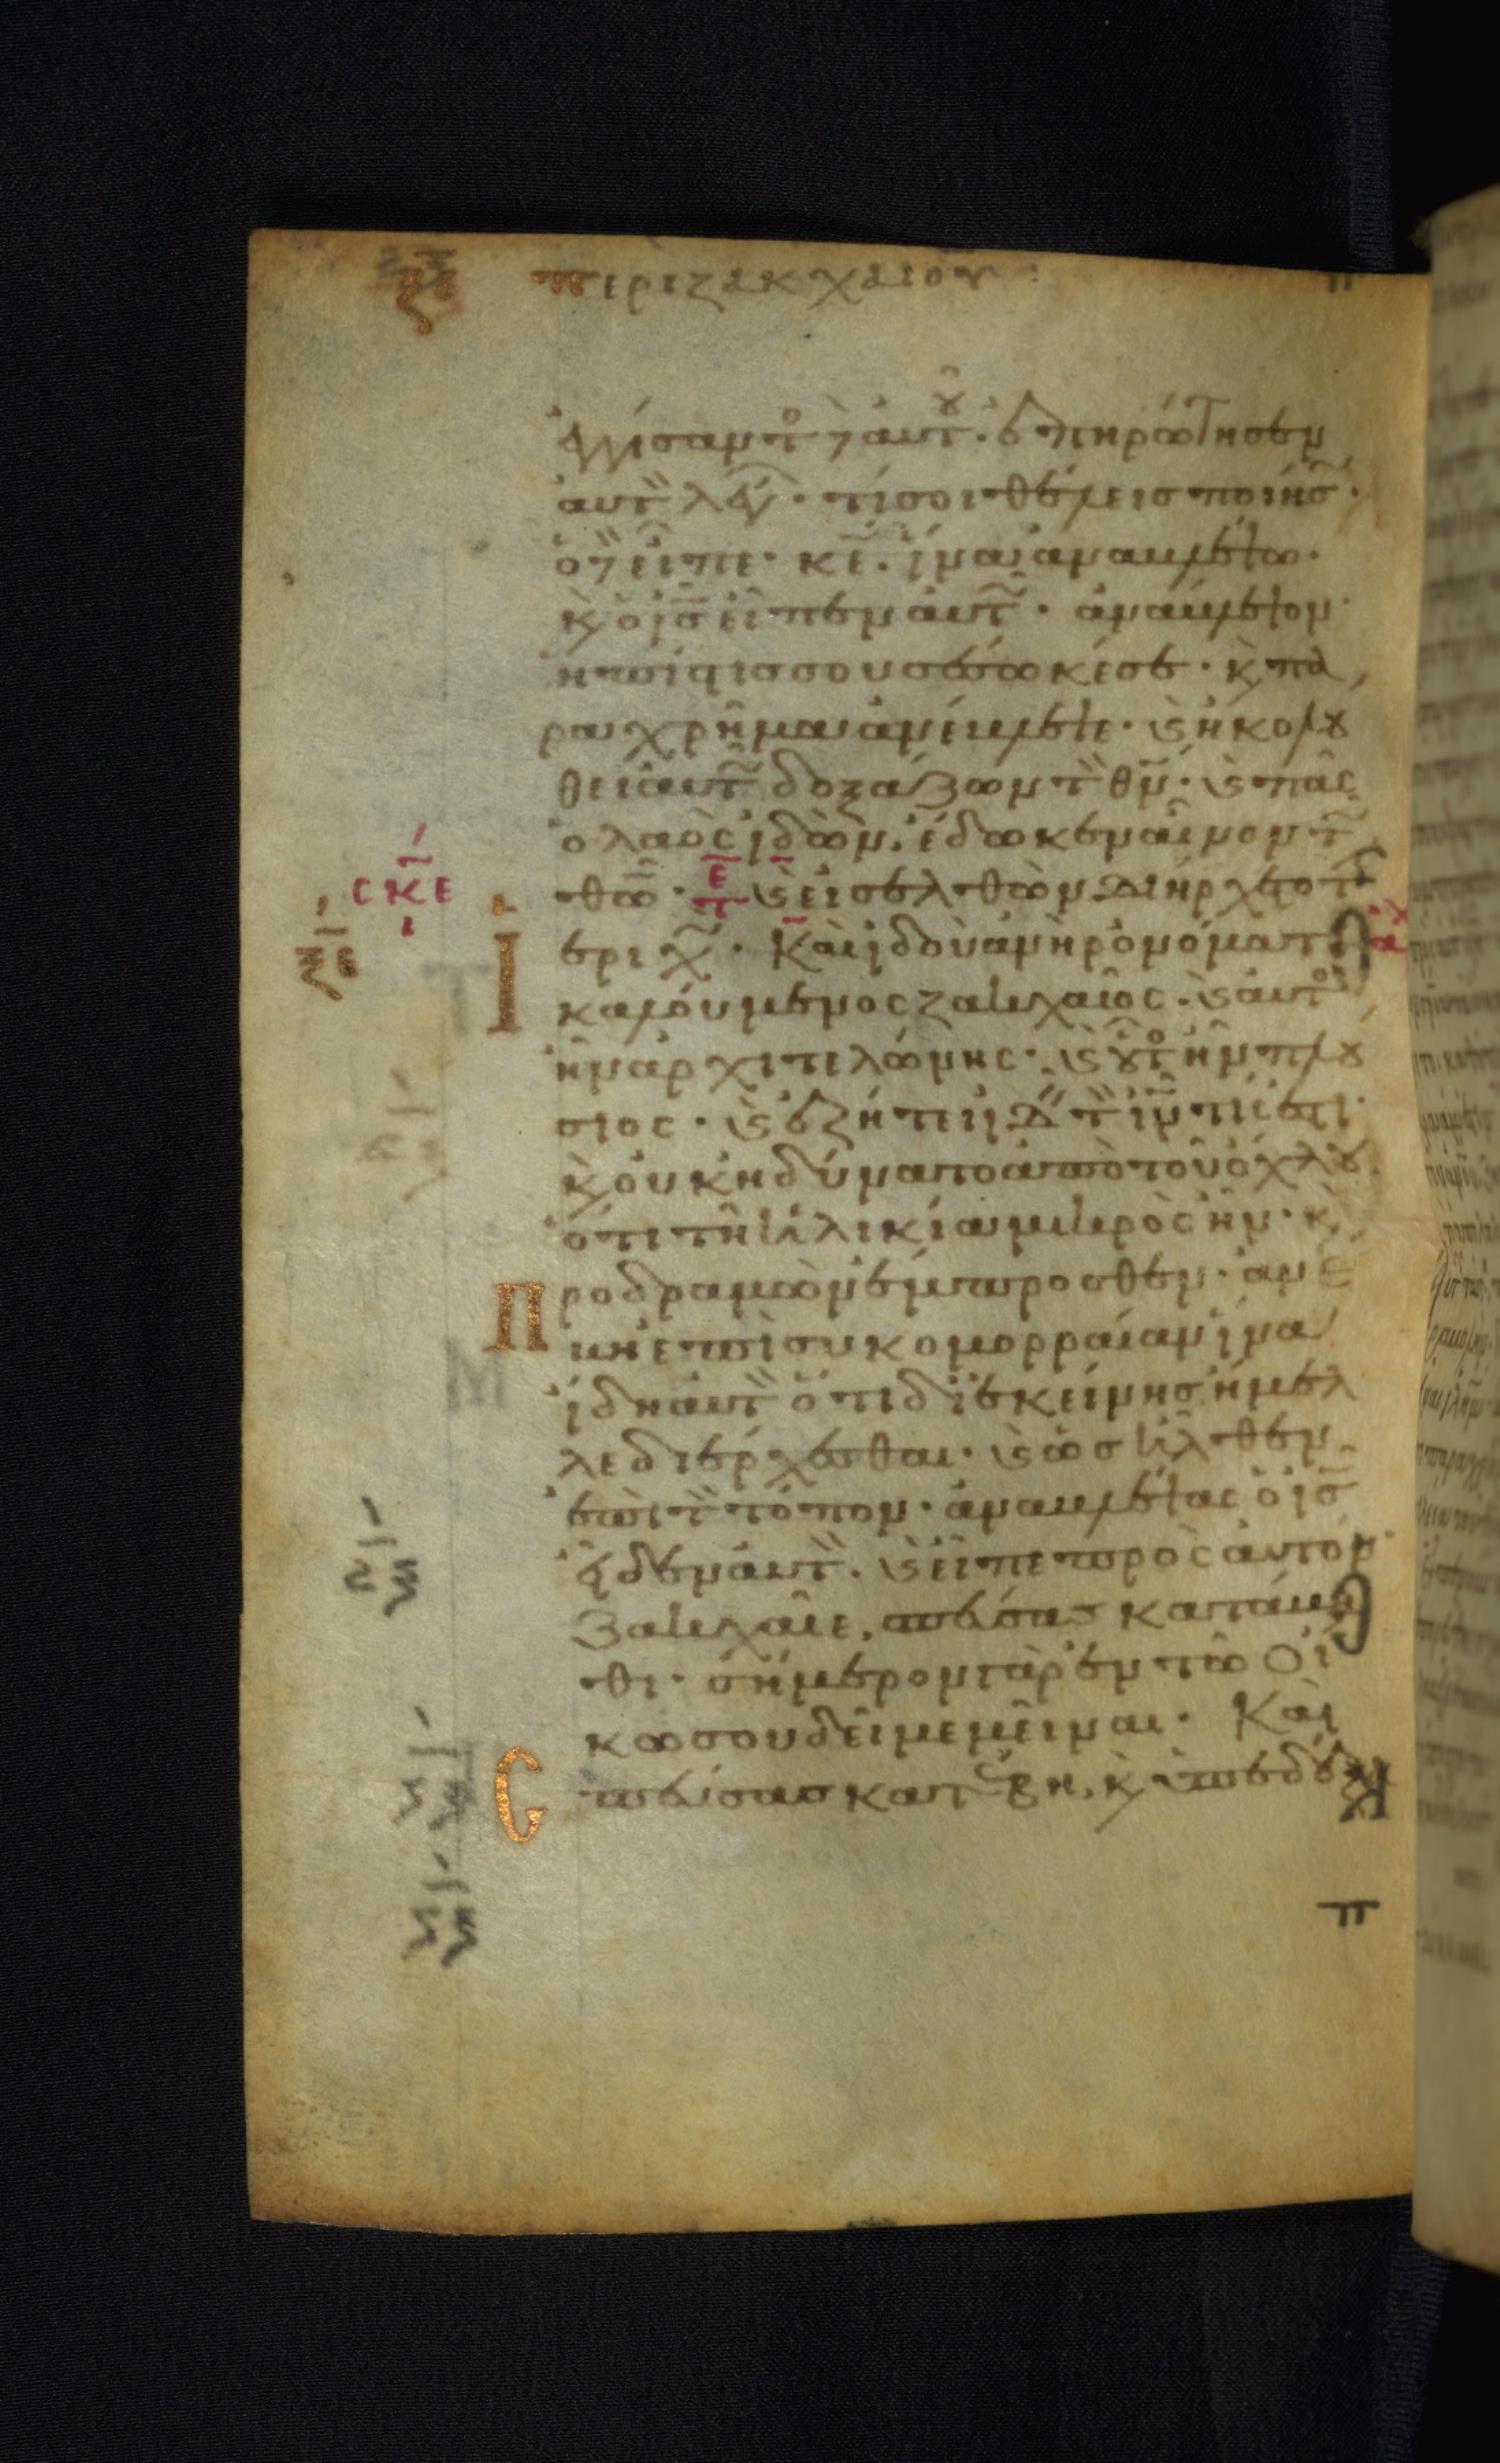 περὶ ζακχαίου :
ἐγγίσαντ(ος) δὲ αὐτ(οῦ). ἐπηρώτησεν
αὐτὸν λέγ(ων). τί σοι θέλεις ποιήσ(ω).
ὁ δὲ εἶπε. κ̅ε̅. ἵνα ἀναβλέψω.
κ(αὶ) ὁ ι̅ς̅ εἶπεν αὐτῶ. ἀνάβλεψον.
ἡ πίστις σου σέσωκέ σε. κ(αὶ) πα
ραχρῆμα ἀνέβλεψε. κ(αὶ) ἠκολού
θει αὐτῶ δοξάζων τὸν θ̅ν̅. κ(αὶ) πᾶς
ὁ λαὸς ἰδὼν, ἔδωκεν αἶνον τῶ
θ̅ω̅. κ(αὶ) εἰσελθὼν διήρχετο τὴν
ἱεριχώ. Καὶ ἰδοὺ ἀνὴρ ὀνόματι
καλούμενος ζακχαῖος. κ(αὶ) αὐτὸς
ἦν ἀρχιτελώνης. κ(αὶ) οὗτος ἦν πλού
σιος. κ(αὶ) ἐζήτει ἰδεῖν τὸν ι̅ν̅ τίς ἐστι.
κ(αὶ) οὐκ ἠδύνατο ἀπὸ τοῦ ὄχλου
ὅτι τῆ ἡλικία μικρὸς ἦν. κ(αὶ)
προδραμὼν ἔμπροσθεν. ἀνέ
βη ἐπὶ συκομορραίαν ἵνα
ἴδη αὐτὸν ὅτι δι' ἐκείνης ἤμελ
λε διέρχεσθαι. κ(αὶ) ὡς ἦλθεν
ἐπὶ τὸν τόπον. ἀναβλέψας ὁ ι̅ς̅
εἶδεν αὐτὸν. κ(αὶ) εἶπε πρὸς αὐτόν
Ζακχαῖε, σπεύσας κατάβη
θι. σήμερον γὰρ ἐν τῶ οἴ
κω σου δεῖ με μεῖναι. Καὶ
σπεύσας κατέβη, κ(αὶ) ὑπεδέξ